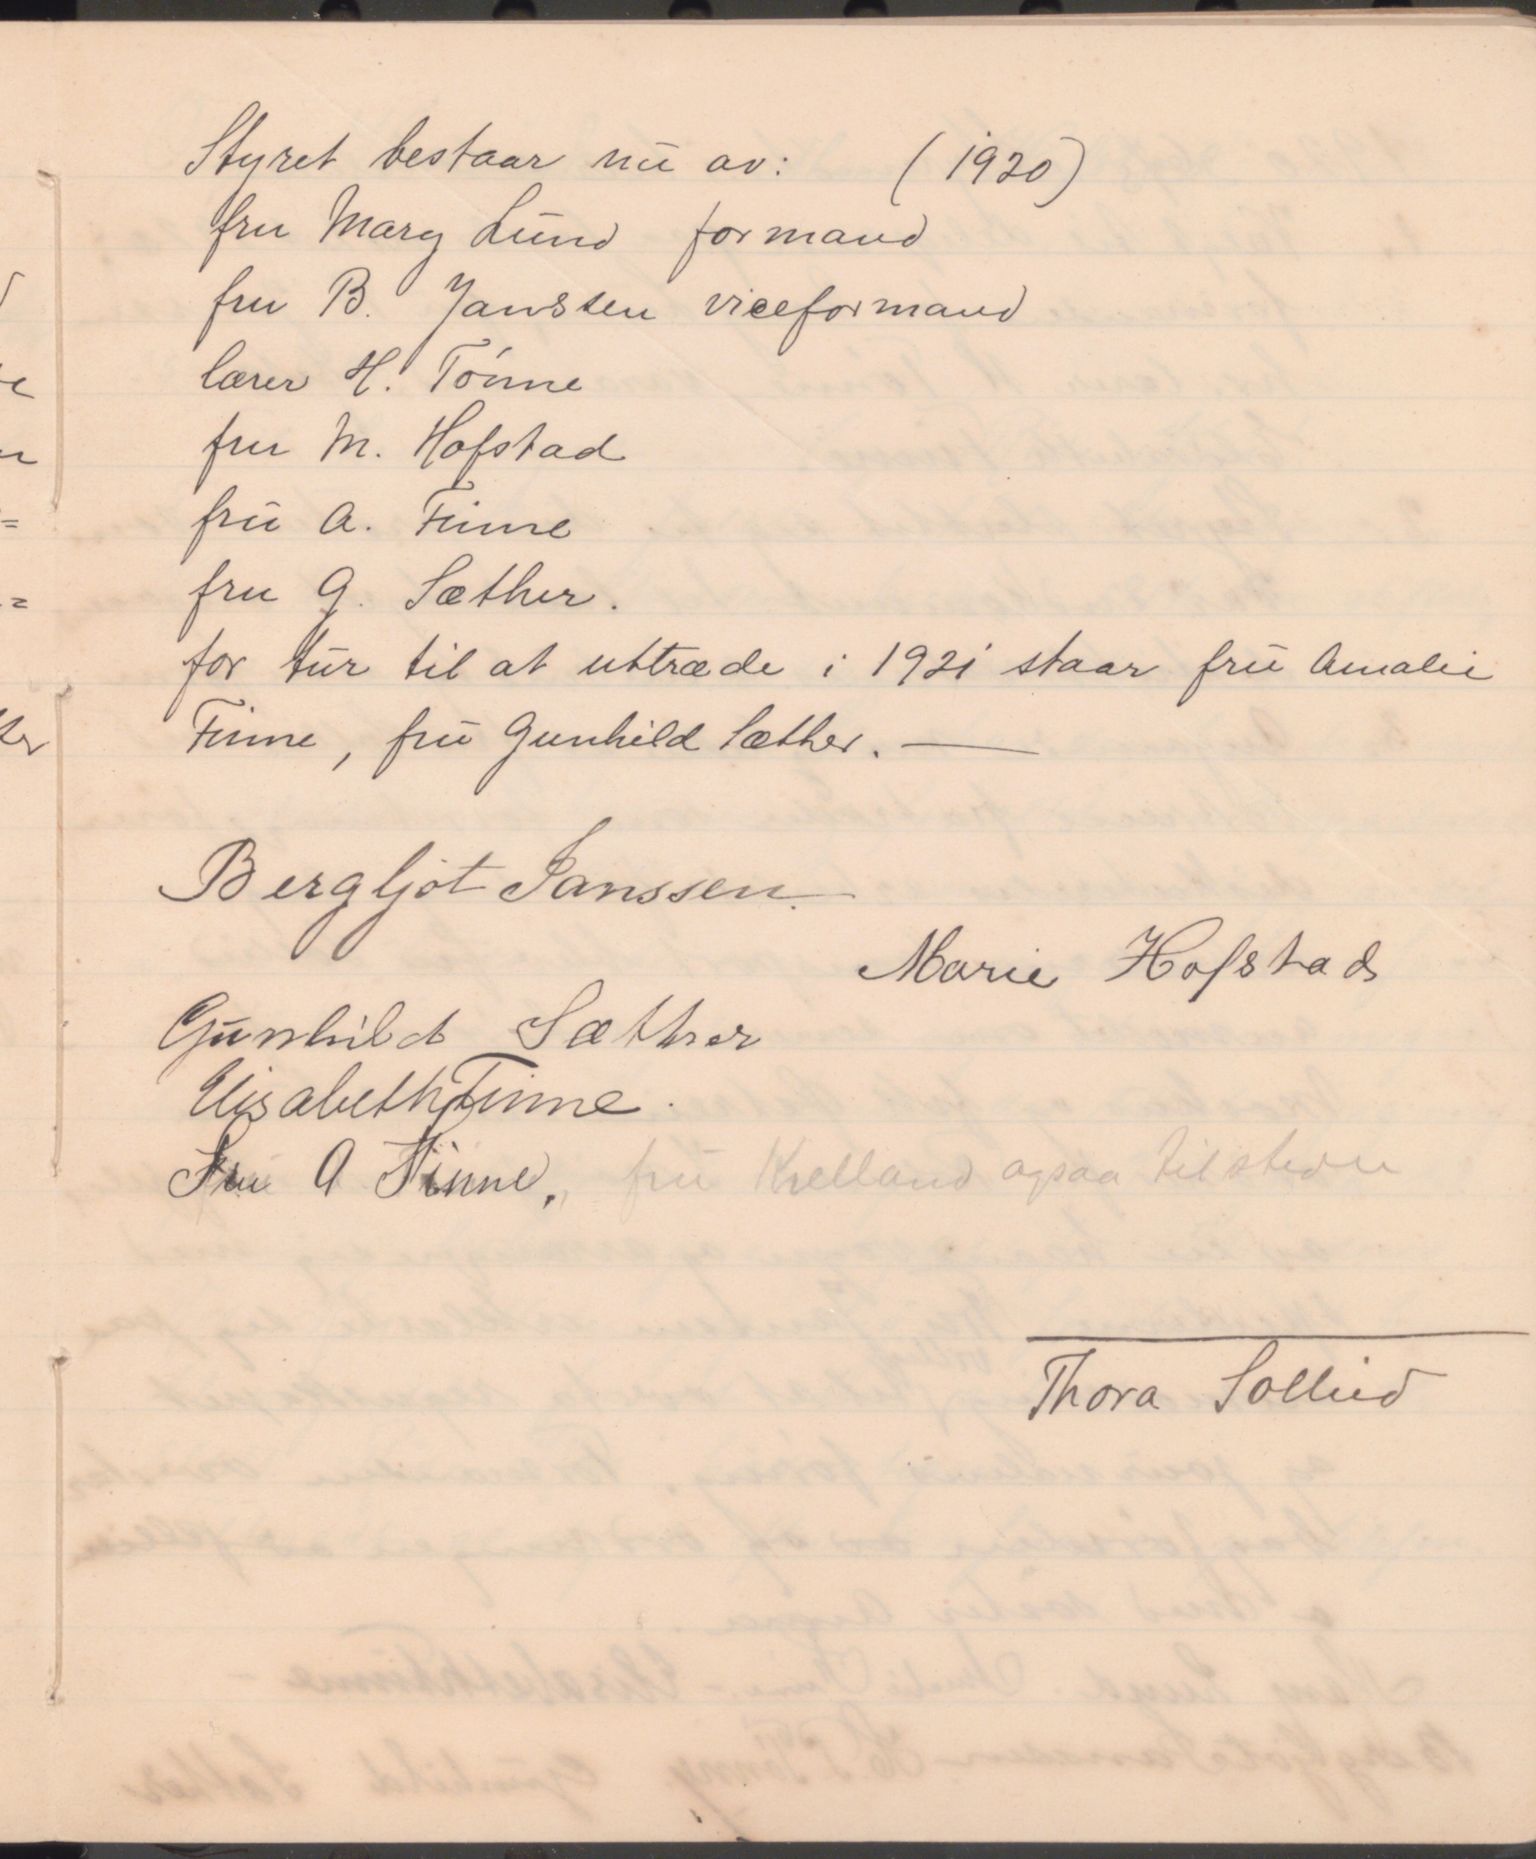 Styret bestaar nu av: (1920)
fru Mary Lund formand
fru B. Janssen viceformand
lærer H. Tønne
fru M. Hofstad
fru A. Finne
fru G. Sæther.
for tur til at uttræde i 1921 staar fru Amalie
Finne, fru Gunhild Sæther. —
Bergljot Janssen.
Marie Hofstad
Gunhild Sæther
Elisabeth Finne.
Fru A Finne, fru Kielland ogsaa tilstede
Thora Sollied